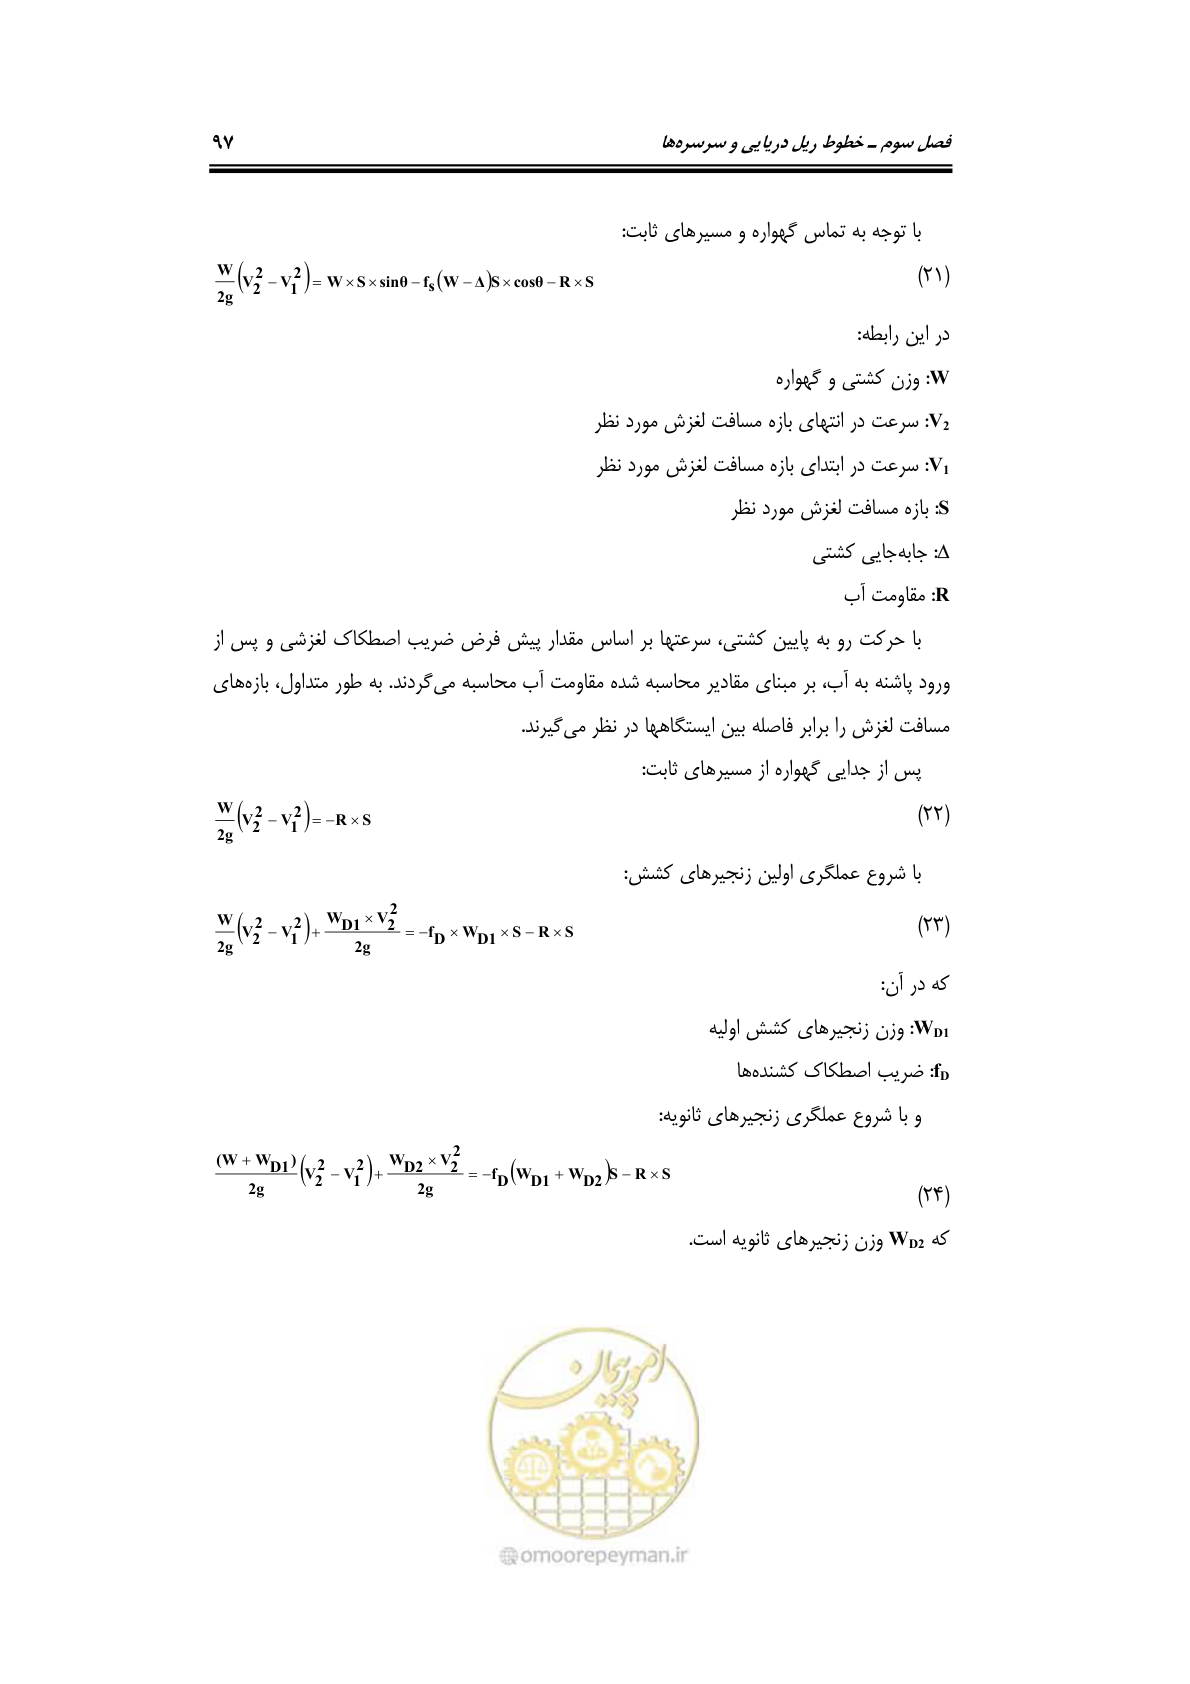 فصل سوم ـ خطوط ریل دریایی و سرسره‌ها ۹۷
با توجه به تماس گهواره و مسیرهای ثابت:
(۲۱) W/2g (V₂² − V₁²) = W × S × sinθ − fₛ(W − Δ)S × cosθ − R × S
در این رابطه:
W: وزن کشتی و گهواره
V₂: سرعت در انتهای بازه مسافت لغزش مورد نظر
V₁: سرعت در ابتدای بازه مسافت لغزش مورد نظر
S: بازه مسافت لغزش مورد نظر
Δ: جابه‌جایی کشتی
R: مقاومت آب
با حرکت رو به پایین کشتی، سرعتها بر اساس مقدار پیش فرض ضریب اصطکاک لغزشی و پس از
ورود پاشنه به آب، بر مبنای مقادیر محاسبه شده مقاومت آب محاسبه می‌گردند. به طور متداول، بازه‌های
مسافت لغزش را برابر فاصله بین ایستگاهها در نظر می‌گیرند.
پس از جدایی گهواره از مسیرهای ثابت:
(۲۲) W/2g (V₂² − V₁²) = −R × S
با شروع عملگری اولین زنجیرهای کشش:
(۲۳) W/2g (V₂² − V₁²) + (W_D1 × V₂²)/2g = −f_D × W_D1 × S − R × S
که در آن:
W_D1: وزن زنجیرهای کشش اولیه
f_D: ضریب اصطکاک کشنده‌ها
و با شروع عملگری زنجیرهای ثانویه:
(۲۴) (W + W_D1)/2g (V₂² − V₁²) + (W_D2 × V₂²)/2g = −f_D(W_D1 + W_D2)S − R × S
که W_D2 وزن زنجیرهای ثانویه است.
امور پیمان
@omoorepeyman.ir